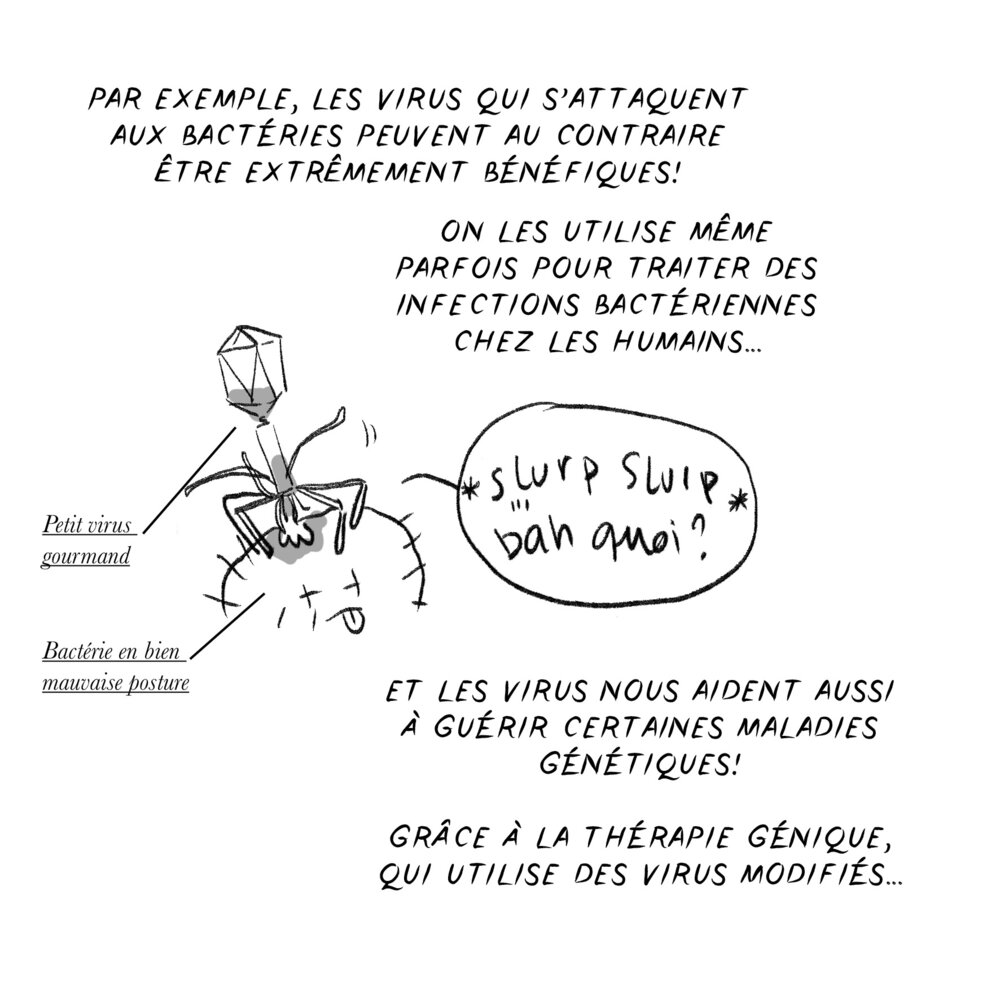 PAR EXEMPLE, LES VIRUS QUI S'ATTAQUENT
AUX BACTÉRIES PEUVENT AU CONTRAIRE
ÊTRE EXTRÊMEMENT BÉNÉFIQUES!
ON LES UTILISE MÊME
PARFOIS POUR TRAITER DES
INFECTIONS BACTÉRIENNES
CHEZ LES HUMAINS...
*slurp slurp*
... bah quoi?
Petit virus
gourmand
Bactérie en bien
mauvaise posture
ET LES VIRUS NOUS AIDENT AUSSI
À GUÉRIR CERTAINES MALADIES
GÉNÉTIQUES!
GRÂCE À LA THÉRAPIE GÉNIQUE,
QUI UTILISE DES VIRUS MODIFIÉS...